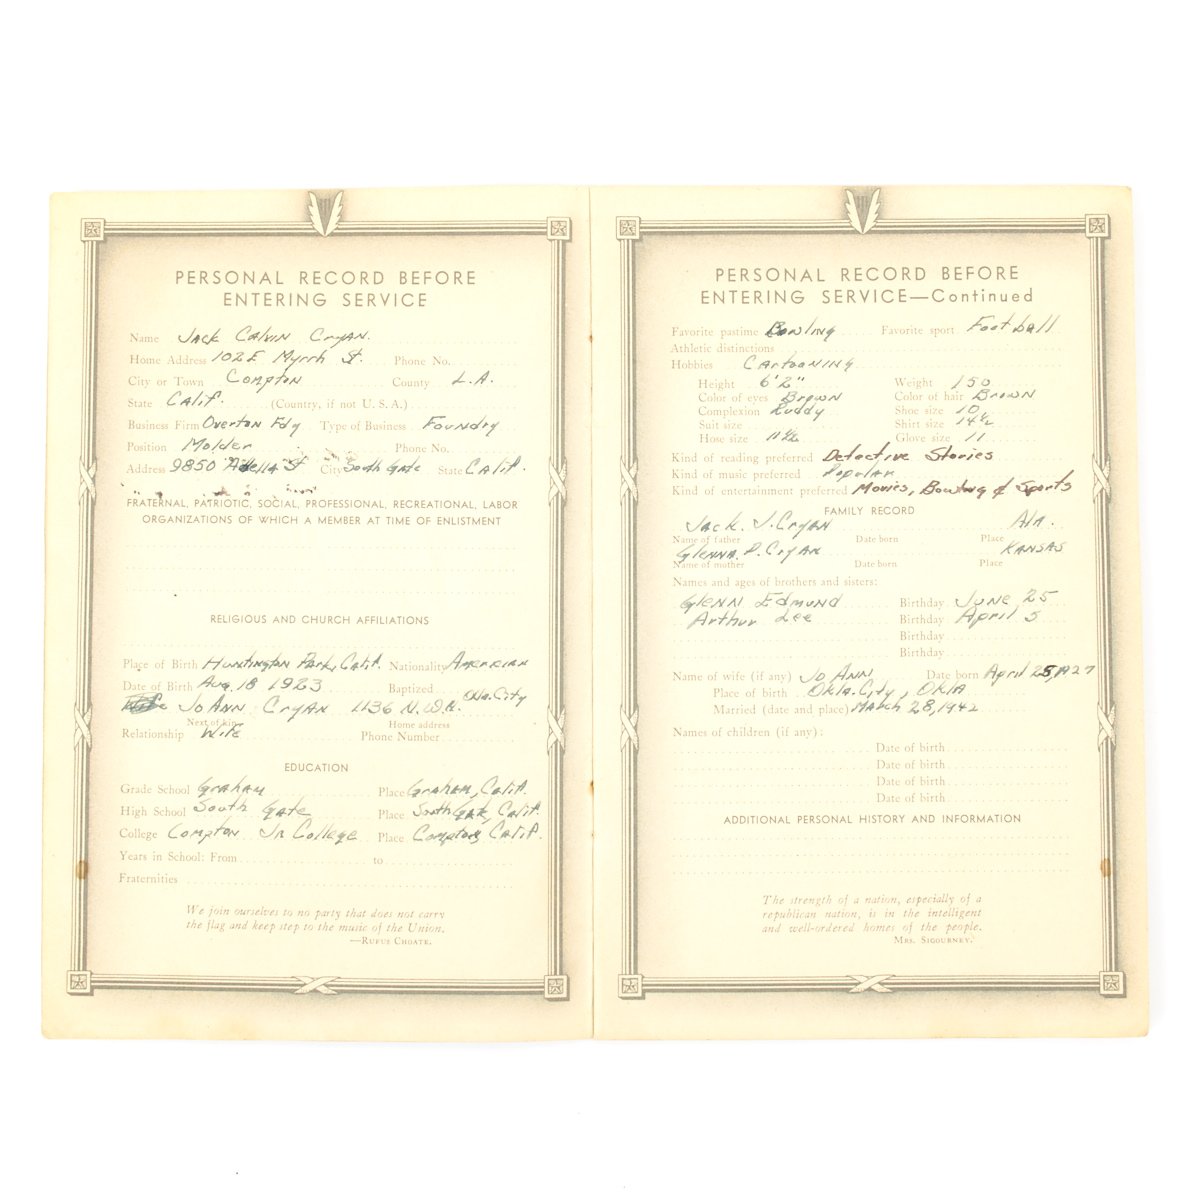 PERSONAL RECORD BEFORE
ENTERING SERVICE
Name Jack Calvin Cryan.
Home Address 102 E Myrrh St. Phone No.
City or Town Compton County L.A.
State Calif. (Country, if not U. S. A.)
Business Firm Overton Fdy Type of Business Foundry
Position Molder Phone No.
Address 9850 St City South Gate State Calif.
FRATERNAL, PATRIOTIC, SOCIAL, PROFESSIONAL, RECREATIONAL, LABOR
ORGANIZATIONS OF WHICH A MEMBER AT TIME OF ENLISTMENT
RELIGIOUS AND CHURCH AFFILIATIONS
Place of Birth Huntington Park, Calif. Nationality American
Date of Birth Aug. 18 1923 Baptized
JoAnn Cryan 1136 N.W. Okla. City
Next of kin Home address
Relationship Wife Phone Number
EDUCATION
Grade School Graham Place Graham, Calif.
High School South Gate Place South Gate, Calif.
College Compton Jr College Place Compton, Calif.
Years in School: From to
Fraternities
We join ourselves to no party that does not carry
the flag and keep step to the music of the Union.
—RUFUS CHOATE.
PERSONAL RECORD BEFORE
ENTERING SERVICE—Continued
Favorite pastime Bowling Favorite sport Football
Athletic distinctions
Hobbies Cartooning
Height 6'2" Weight 150
Color of eyes Brown Color of hair Brown
Complexion Ruddy Shoe size 10
Suit size Shirt size 14½
Hose size 11½ Glove size 11
Kind of reading preferred Detective Stories
Kind of music preferred Popular
Kind of entertainment preferred Movies, Bowling & Sports
FAMILY RECORD
Jack. J. Cryan Ala.
Name of father Date born Place
Glenna. Cryan Kansas
Name of mother Date born Place
Names and ages of brothers and sisters:
Glenn Edmund Birthday June 25
Arthur Lee Birthday April 5
Birthday
Birthday
Name of wife (if any) Jo Ann Date born April 25, 1927
Place of birth Okla. City, Okla
Married (date and place) March 28, 1942
Names of children (if any):
Date of birth
Date of birth
Date of birth
Date of birth
ADDITIONAL PERSONAL HISTORY AND INFORMATION
The strength of a nation, especially of a
republican nation, is in the intelligent
and well-ordered homes of the people.
MRS. SIGOURNEY.